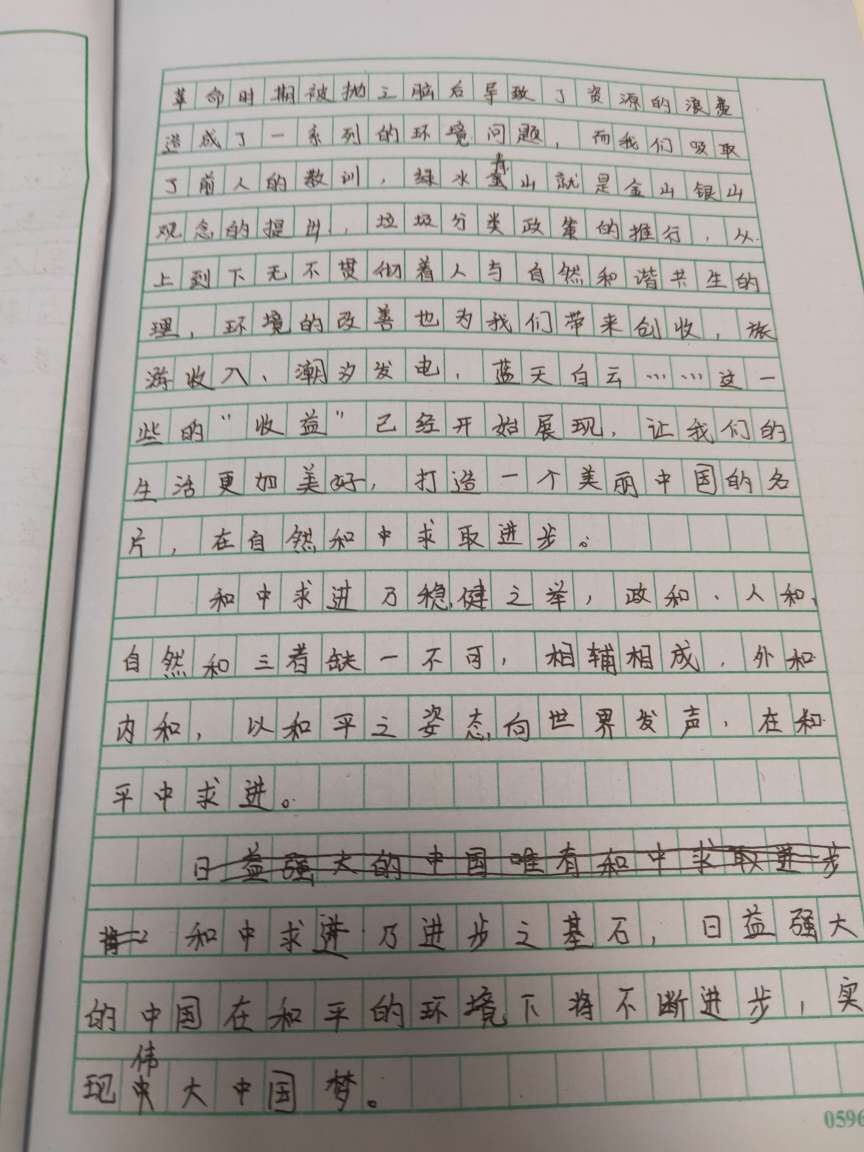 革命时期被抛之脑后导致了资源的浪费
造成了一系列的环境问题，而我们吸取
了前人的教训，绿水青山就是金山银山
观念的提出，垃圾分类政策的推行，从
上到下无不贯彻着人与自然和谐共生的
理，环境的改善也为我们带来创收，旅
游收入、潮汐发电，蓝天白云……这一
些的“收益”已经开始展现，让我们的
生活更加美好，打造一个美丽中国的名
片，在自然和中求取进步。
和中求进乃稳健之举，政和、人和、
自然和三者缺一不可，相辅相成，外和
内和，以和平之姿态向世界发声，在和
平中求进。
日益强大的中国唯有和中求取进步
和中求进乃进步之基石，日益强大
的中国在和平的环境下将不断进步，实
现伟大中国梦。
0596